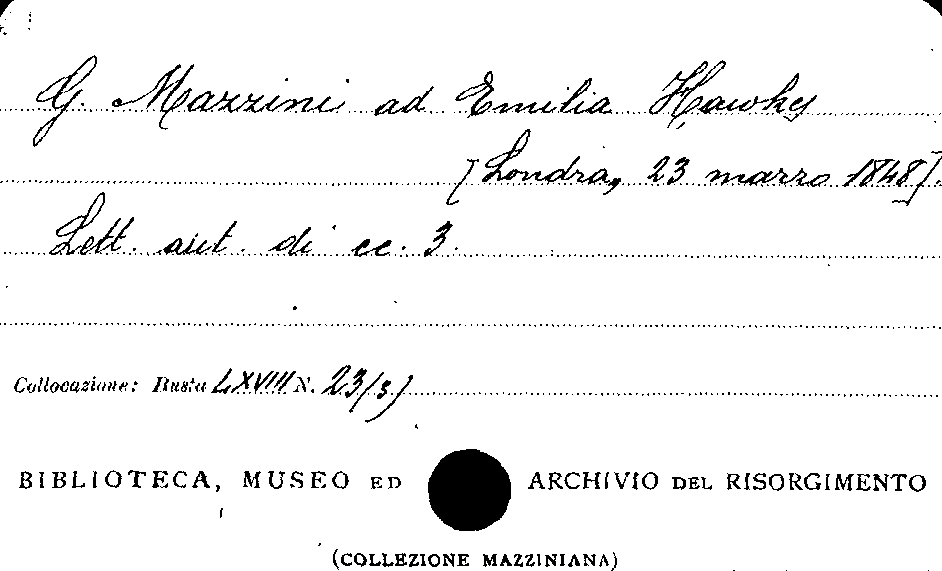 G. Mazzini ad Emilia Hawkes
[Londra, 23 marzo 1848].
Lett. aut. di cc. 3.
Collocazione: Busta LXVIII N. 23(3)
BIBLIOTECA, MUSEO ED ARCHIVIO DEL RISORGIMENTO
(COLLEZIONE MAZZINIANA)